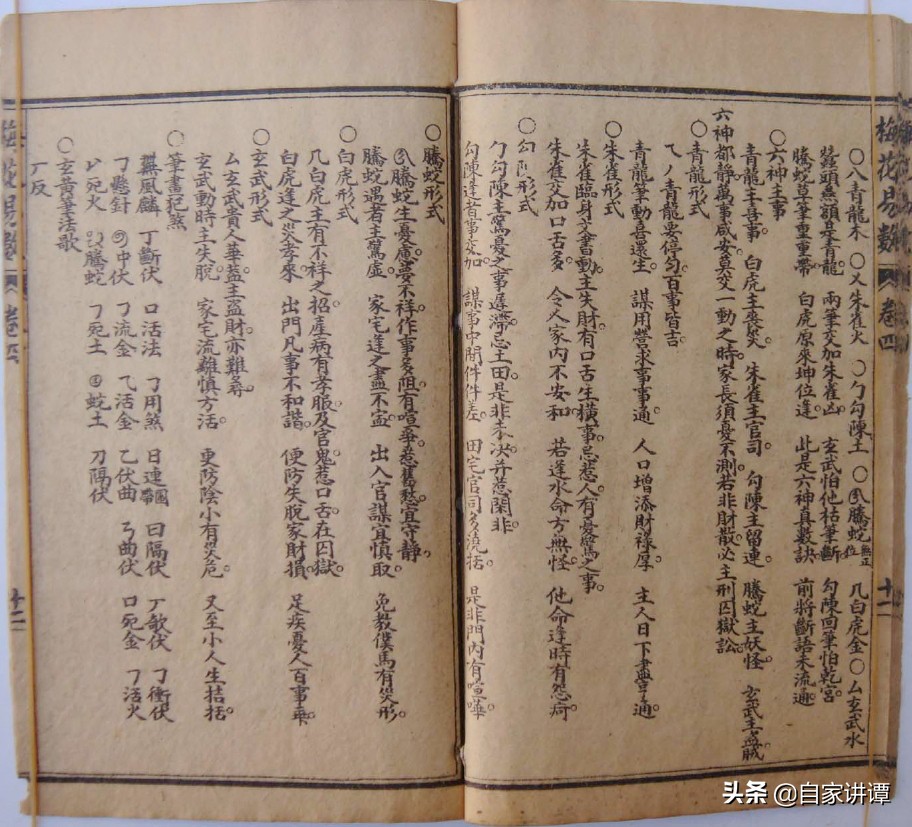 梅花易數 卷四 十一
○八青龍木 ○又朱雀火 ○勹勾陳土 ○ 騰蛇無正位 ○几白虎金 ○厶玄武水
蠶頭燕額是青龍 兩筆交加朱雀凶 玄武怕他枯筆斷 勾陳回筆怕乾宮
騰蛇草筆重重帶 白虎原來坤位逢 此是六神真數訣 前將斷語未流通
○六神主事
青龍主喜事。白虎主喪災。朱雀主官司。勾陳主留連。騰蛇主妖怪。玄武主盜賊
六神都靜萬事咸安莫交一動之時。家長須憂不測若非財散必主刑囚獄訟。
○青龍形式
乁丿青龍要停勻百事皆吉。
青龍筆動喜還生。謀用營求事事通 人口增添財祿厚 主人日下盡亨通
○朱雀形式
朱雀臨身文書動。主失財。有口舌生橫事。忌惹人。有憂驚之事。
朱雀交加口舌多。令人家內不安和 若逢水命方無怪。他命逢時有怨疴
○勾陳形式
勹勾陳主驚憂之事遲滯。忌土田。是非未決。并惹閑非。
勾陳逢者事交加。謀事中間件件差。田宅官司多撓括。是非門內有喧嘩
○騰蛇形式
騰蛇主憂慮夢不祥。作事多阻。有喧爭。惹舊愁。宜守靜。
騰蛇遇者主驚虛。家宅逢之盡不寧 出入官謀宜慎取。免教僕馬有災形
○白虎形式
几白虎主有不祥之招。產病有孝服。及官鬼惹口舌。在囚獄。
白虎逢之災孝來。出門凡事不和諧。便防失脫家財損。足疾憂人百事乖。
○玄武形式
厶玄武貴人華蓋。主盜財。亦難尋。
玄武動時主失脫。家宅流離慎方活。更防陰小有災危。又至小人生拮括。
○筆畫犯煞
無風麟 丁斷伏 口活法 刁用煞 日連 曰隔伏 丁敏伏 刁衝伏
㇆懸針 中伏 刁流金 乁活金 乙伏曲 弓曲伏 口宛金 活火
宛火 騰蛇 宛土 蛟土 刀隔伏
○玄黃筆法歌
厂反